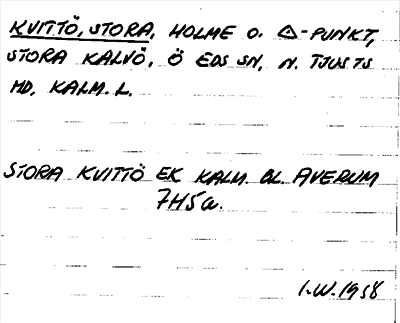 KVITTÖ, STORA, HOLME O. △-PUNKT,
STORA KALVÖ, Ö EDS SN, N. TJUSTS
HD, KALM. L.
STORA KVITTÖ EK KALM. BL. AVERUM
7H5a.
I.W. 1958